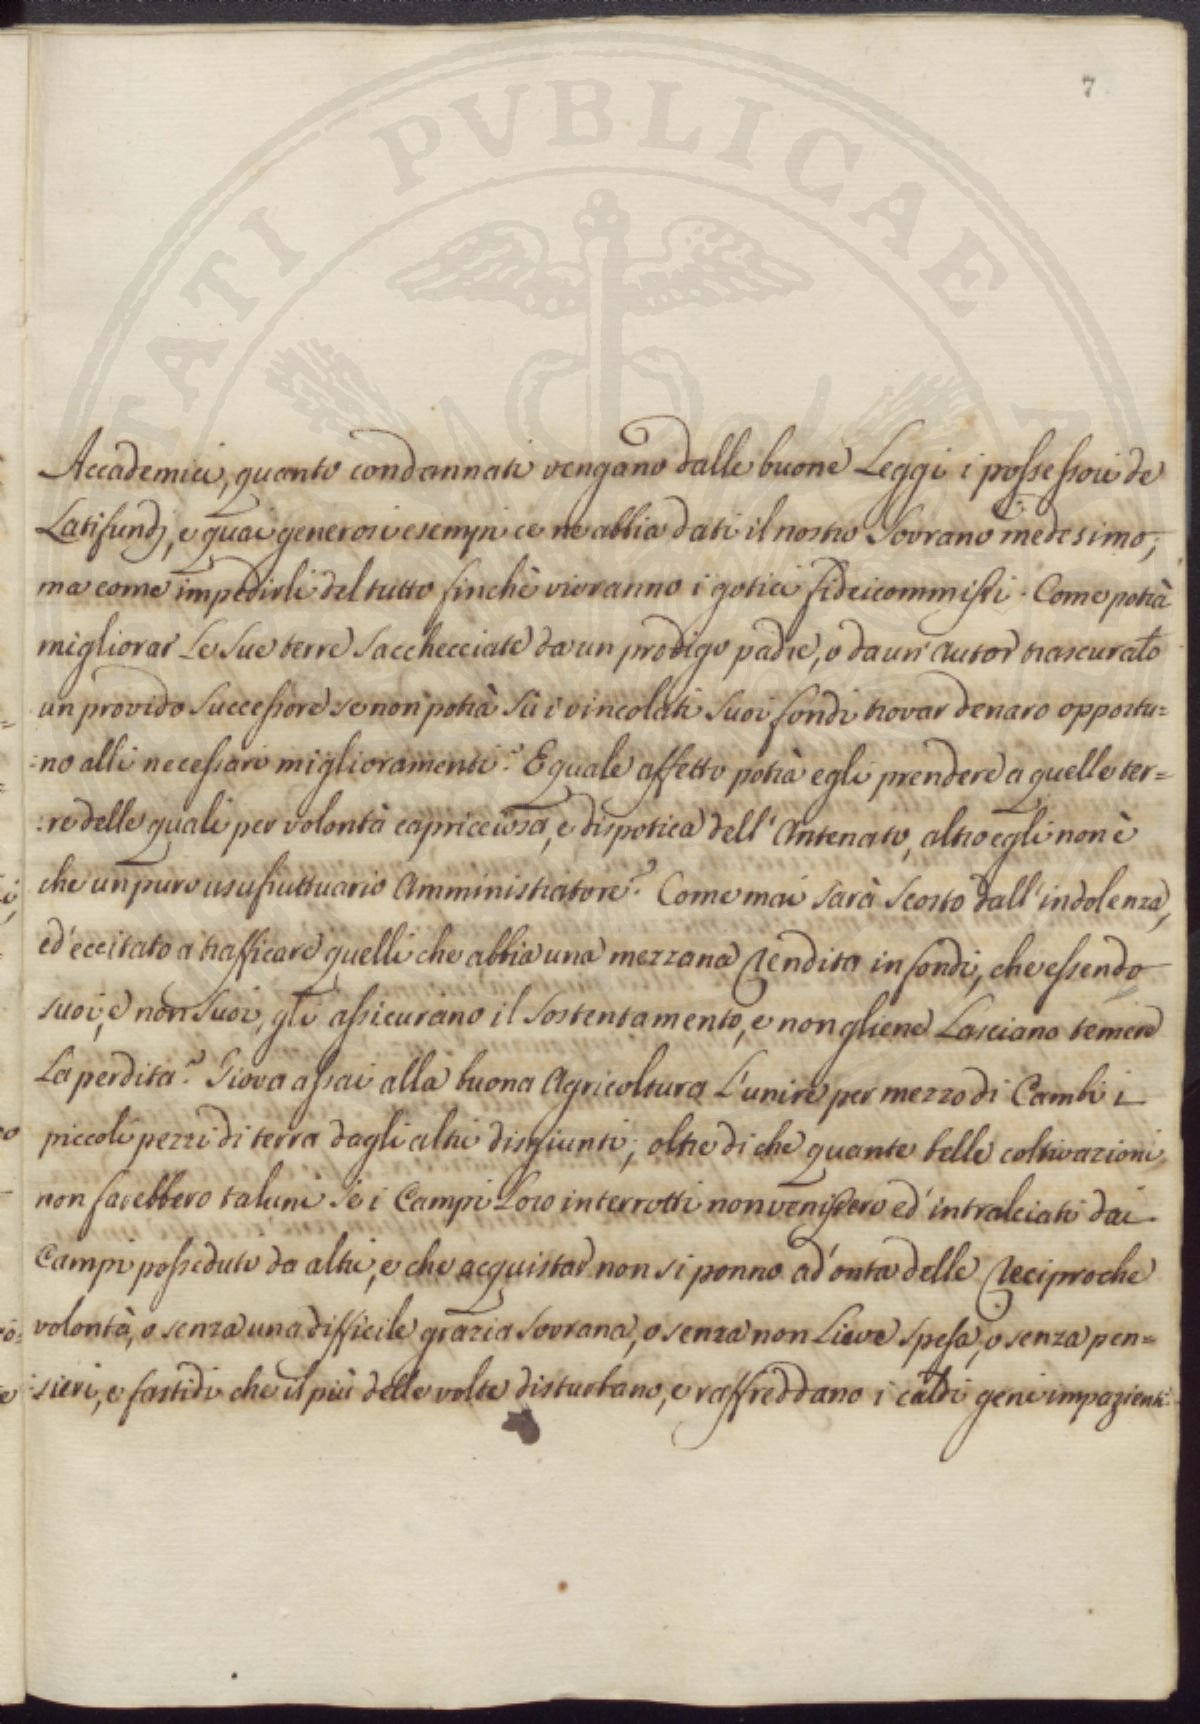 7
TATI PVBLICAE
Accademici, quanto condannati vengano dalle buone Leggi i possessori de
Latifundj, e quai generosi esempi ce ne abbia dati il nostro Sovrano medesimo;
ma come impedirli del tutto finchè vivranno i gotici fideicommissi. Come potrà
migliorar le sue terre sacchecciate da un prodigo padre, o da un' autor trascurato
un provido successore se non potrà sù i vincolati suoi fondi trovar denaro opportu=
:no alli necessari miglioramenti? E quale affetto potrà egli prendere a quelle ter=
:re delle quali per volontà capricciosa, e dispotica dell' Antenato, altro egli non è
che un puro usufruttuario Amministratore? Come mai sarà scosso dall' indolenza,
ed' eccitato a trafficare quelli che abbia una mezzana rendita in fondi, che essendo
suoi, e non suoi, gli assicurano il sostentamento, e non gliene lasciano temere
la perdita? Giova assai alla buona Agricoltura l'unire per mezzo di Cambi i
piccoli pezzi di terra dagli altri disgiunti; oltre di che quante belle coltivazioni
non farebbero taluni se i Campi loro interrotti non venissero ed' intralciati dai
Campi posseduti da altri, e che acquistar non si ponno ad' onta delle reciproche
volontà, o senza una difficile grazia sovrana, o senza non lieve spesa, o senza pen=
:sieri, e fastidi che il più delle volte disturbano, e raffreddano i caldi geni impazienti